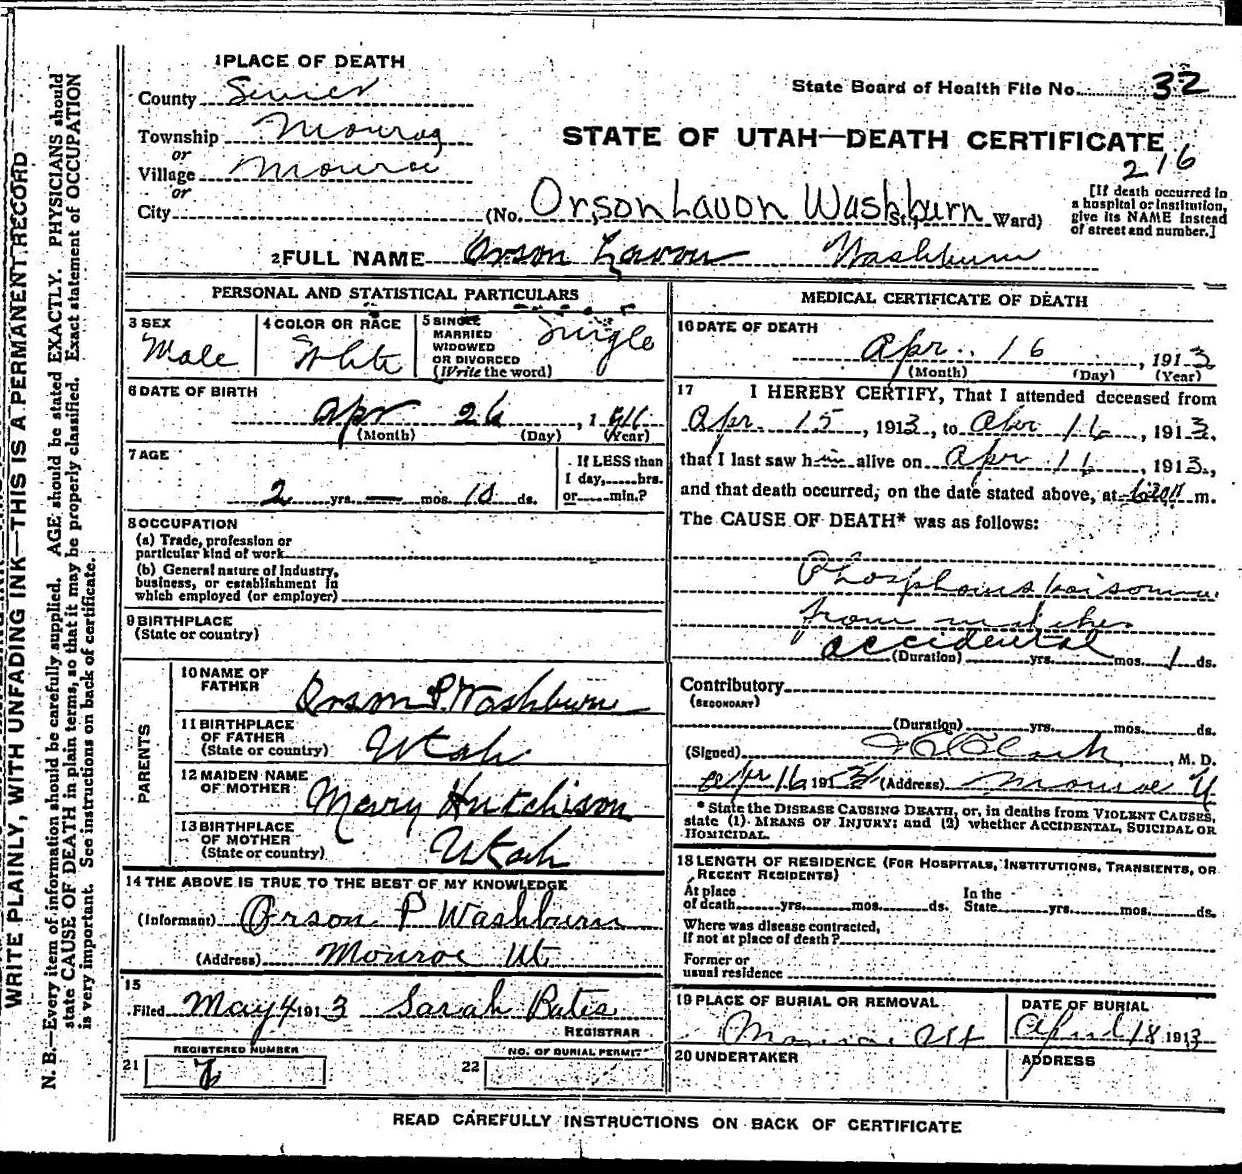 1 PLACE OF DEATH
State Board of Health File No. 32
County Sevier
Township Monroe
STATE OF UTAH—DEATH CERTIFICATE
216
or
Village Monroe
or
City
(No. Orson Lavon Washburn St., Ward)
[If death occurred in a hospital or institution, give its NAME instead of street and number.]
2 FULL NAME Orson Lavon Washburn
PERSONAL AND STATISTICAL PARTICULARS
3 SEX Male
4 COLOR OR RACE White
5 SINGLE MARRIED WIDOWED OR DIVORCED (Write the word) Single
6 DATE OF BIRTH
Apr 26, 1
(Month) (Day) (Year)
7 AGE
2 yrs. — mos. ds.
If LESS than 1 day, hrs. or min.?
8 OCCUPATION
(a) Trade, profession or particular kind of work
(b) General nature of Industry, business, or establishment in which employed (or employer)
9 BIRTHPLACE
(State or country)
PARENTS
10 NAME OF FATHER Orson P. Washburn
11 BIRTHPLACE OF FATHER (State or country) Utah
12 MAIDEN NAME OF MOTHER Mary Hutchison
13 BIRTHPLACE OF MOTHER (State or country) Utah
14 THE ABOVE IS TRUE TO THE BEST OF MY KNOWLEDGE
(Informant) Orson P Washburn
(Address) Monroe Ut
15
Filed May 4 1913 Sarah Bates
REGISTRAR
REGISTERED NUMBER
21
NO. OF BURIAL PERMIT
22
MEDICAL CERTIFICATE OF DEATH
16 DATE OF DEATH
Apr. 16, 1913
(Month) (Day) (Year)
17 I HEREBY CERTIFY, That I attended deceased from
Apr. 15, 1913, to Apr 16, 1913,
that I last saw him alive on Apr 16, 1913,
and that death occurred, on the date stated above, at m.
The CAUSE OF DEATH* was as follows:
Phosphorus poisoning
from matches
accidental
(Duration) yrs. mos. 1 ds.
Contributory
(SECONDARY)
(Duration) yrs. mos. ds.
(Signed) Clark, M. D.
Apr 16 1913 (Address) Monroe U
* State the DISEASE CAUSING DEATH, or, in deaths from VIOLENT CAUSES,
state (1) MEANS OF INJURY; and (2) whether ACCIDENTAL, SUICIDAL OR
HOMICIDAL.
18 LENGTH OF RESIDENCE (FOR HOSPITALS, INSTITUTIONS, TRANSIENTS, OR
RECENT RESIDENTS)
At place of death yrs. mos. ds. In the State yrs. mos. ds.
Where was disease contracted,
If not at place of death?
Former or
usual residence
19 PLACE OF BURIAL OR REMOVAL
Monroe Ut
DATE OF BURIAL
April 18 1913
20 UNDERTAKER
ADDRESS
READ CAREFULLY INSTRUCTIONS ON BACK OF CERTIFICATE
WRITE PLAINLY, WITH UNFADING INK—THIS IS A PERMANENT RECORD
N. B.—Every item of information should be carefully supplied. AGE should be stated EXACTLY. PHYSICIANS should
state CAUSE OF DEATH in plain terms, so that it may be properly classified. Exact statement of OCCUPATION
is very important. See instructions on back of certificate.